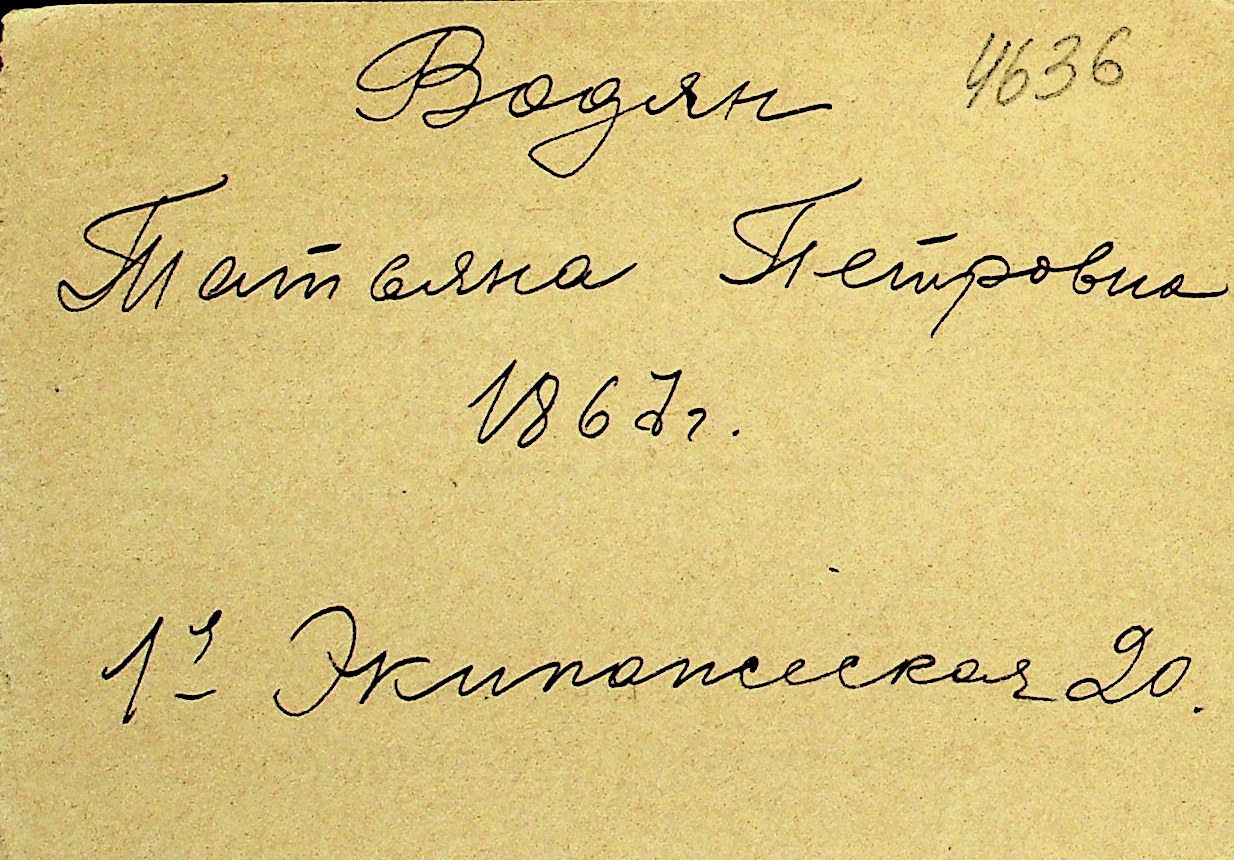 Водян 4636
Татьяна Петровна
1867г.
1я Экипажеская 20.